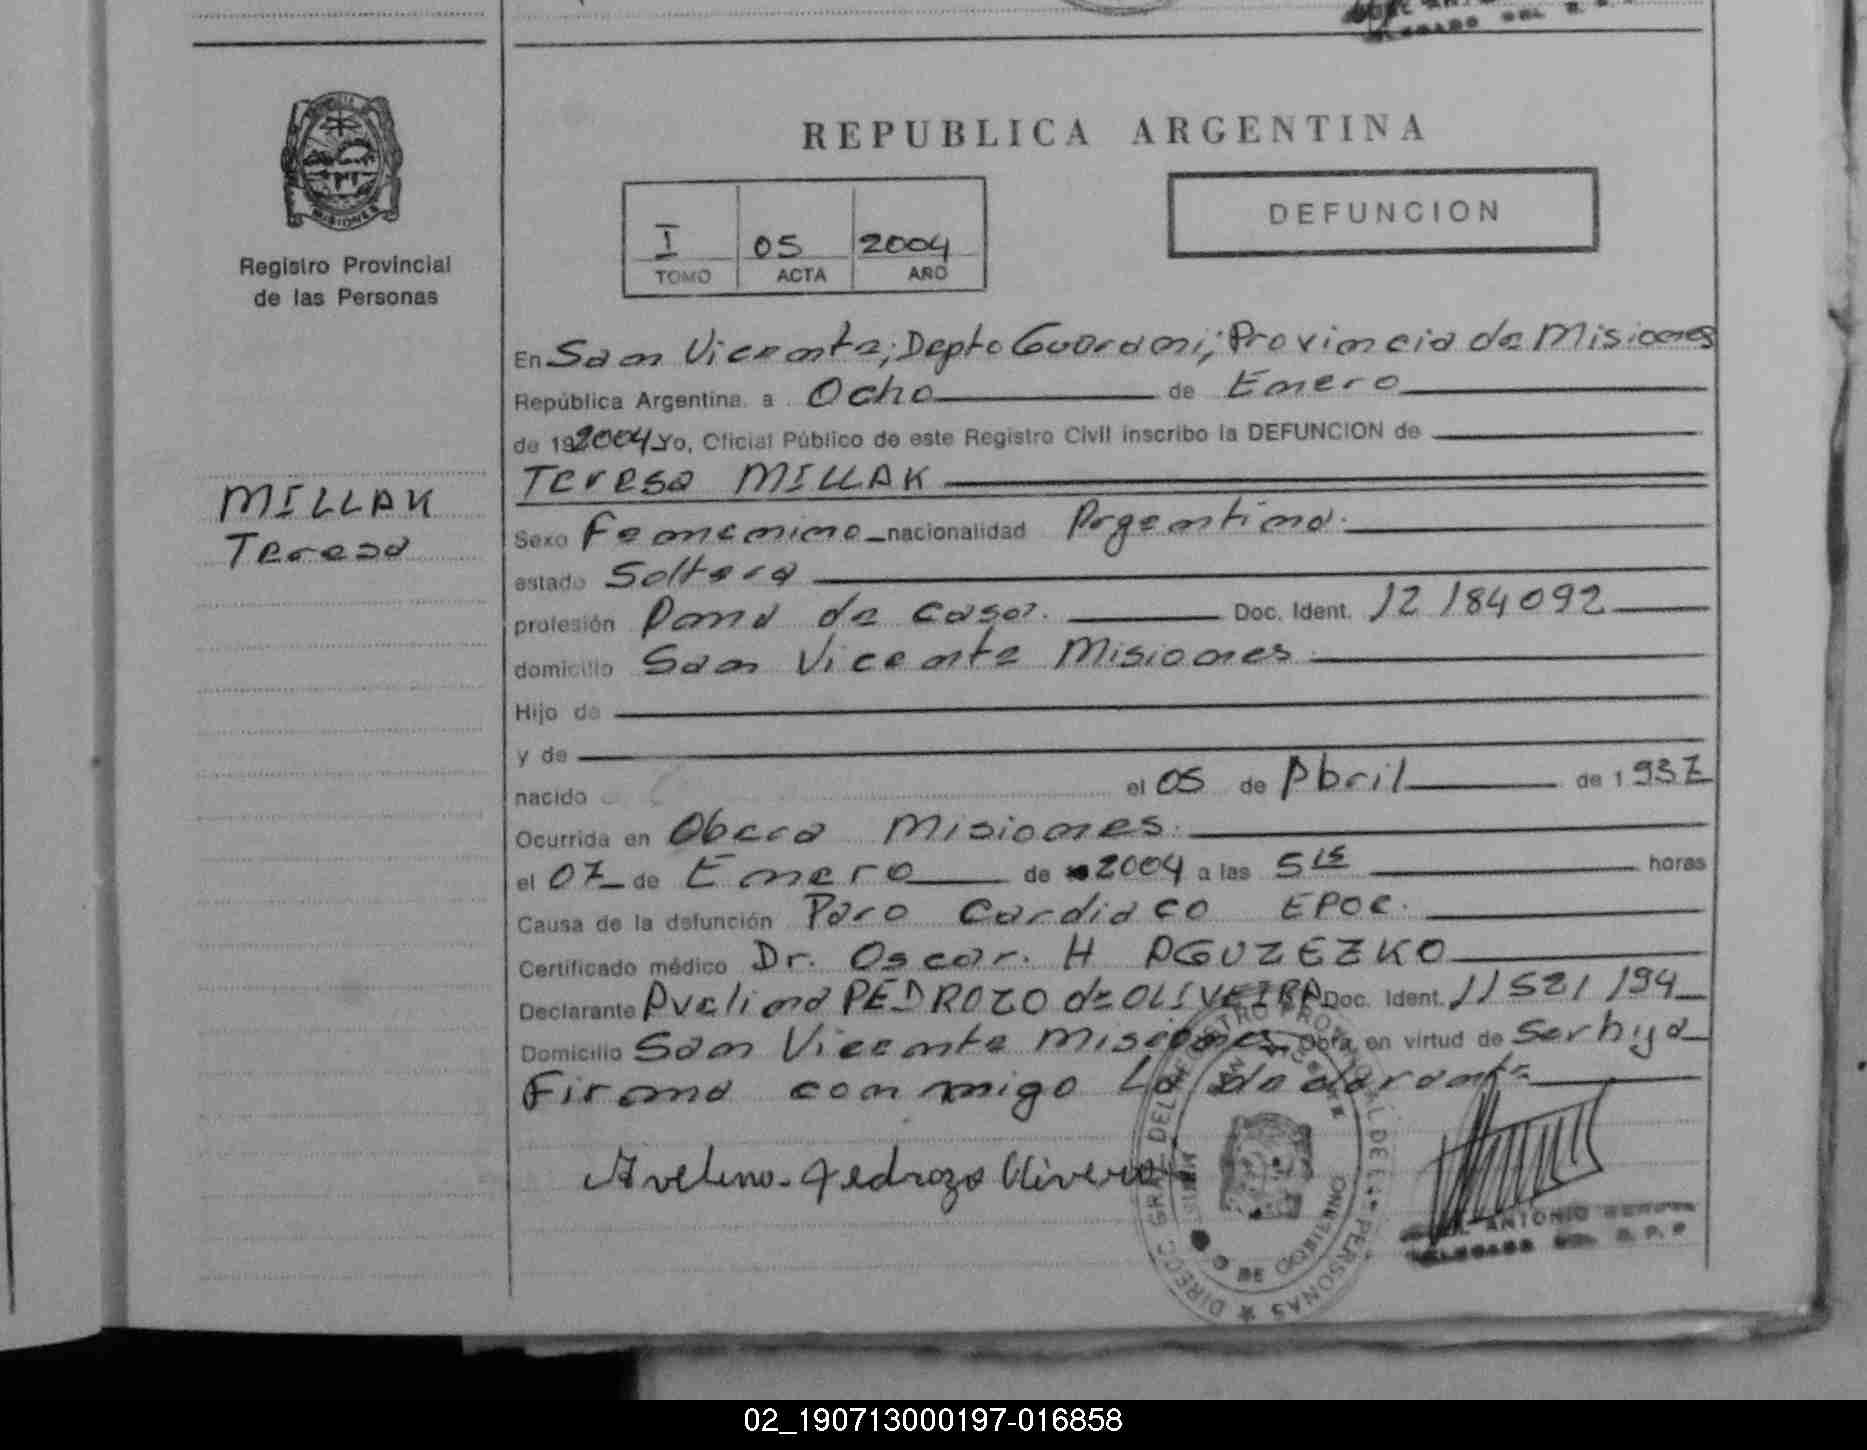 REPUBLICA ARGENTINA
DEFUNCION
I 05 2004
TOMO ACTA AÑO
MISIONES
Registro Provincial
de las Personas
MILLAK
Teresa
En San Vicente; Depto Guarani; Provincia de Misiones
República Argentina a Ocho de Enero
de 19 2004 Yo, Oficial Público de este Registro Civil inscribo la DEFUNCION de
Teresa MILLAK
Sexo Femenino nacionalidad Argentina.
estado Soltera
profesión Dama de casa. Doc. Ident. 12 184 092
domicilio San Vicente Misiones
Hijo de
y de
nacido el 05 de Abril de 1 937
Ocurrida en Obera Misiones.
el 07 de Enero de 2004 a las 5 15 horas
Causa de la defunción Paro Cardiaco EPOC.
Certificado médico Dr. Oscar. H AGUZEZKO
Declarante Avelina PEDROZO de OLIVEIRA Doc. Ident. 11 521 194
Domicilio San Vicente Misiones Obra en virtud de Ser hija
Firma conmigo La declarante
Avelina Pedrozo Olivera
DIREC. GRAL. DEL REGISTRO PROVINCIAL DE LAS PERSONAS
DE GOBIERNO
ANTONIO
DELEGADO DEL R. P. P
02_190713000197-016858